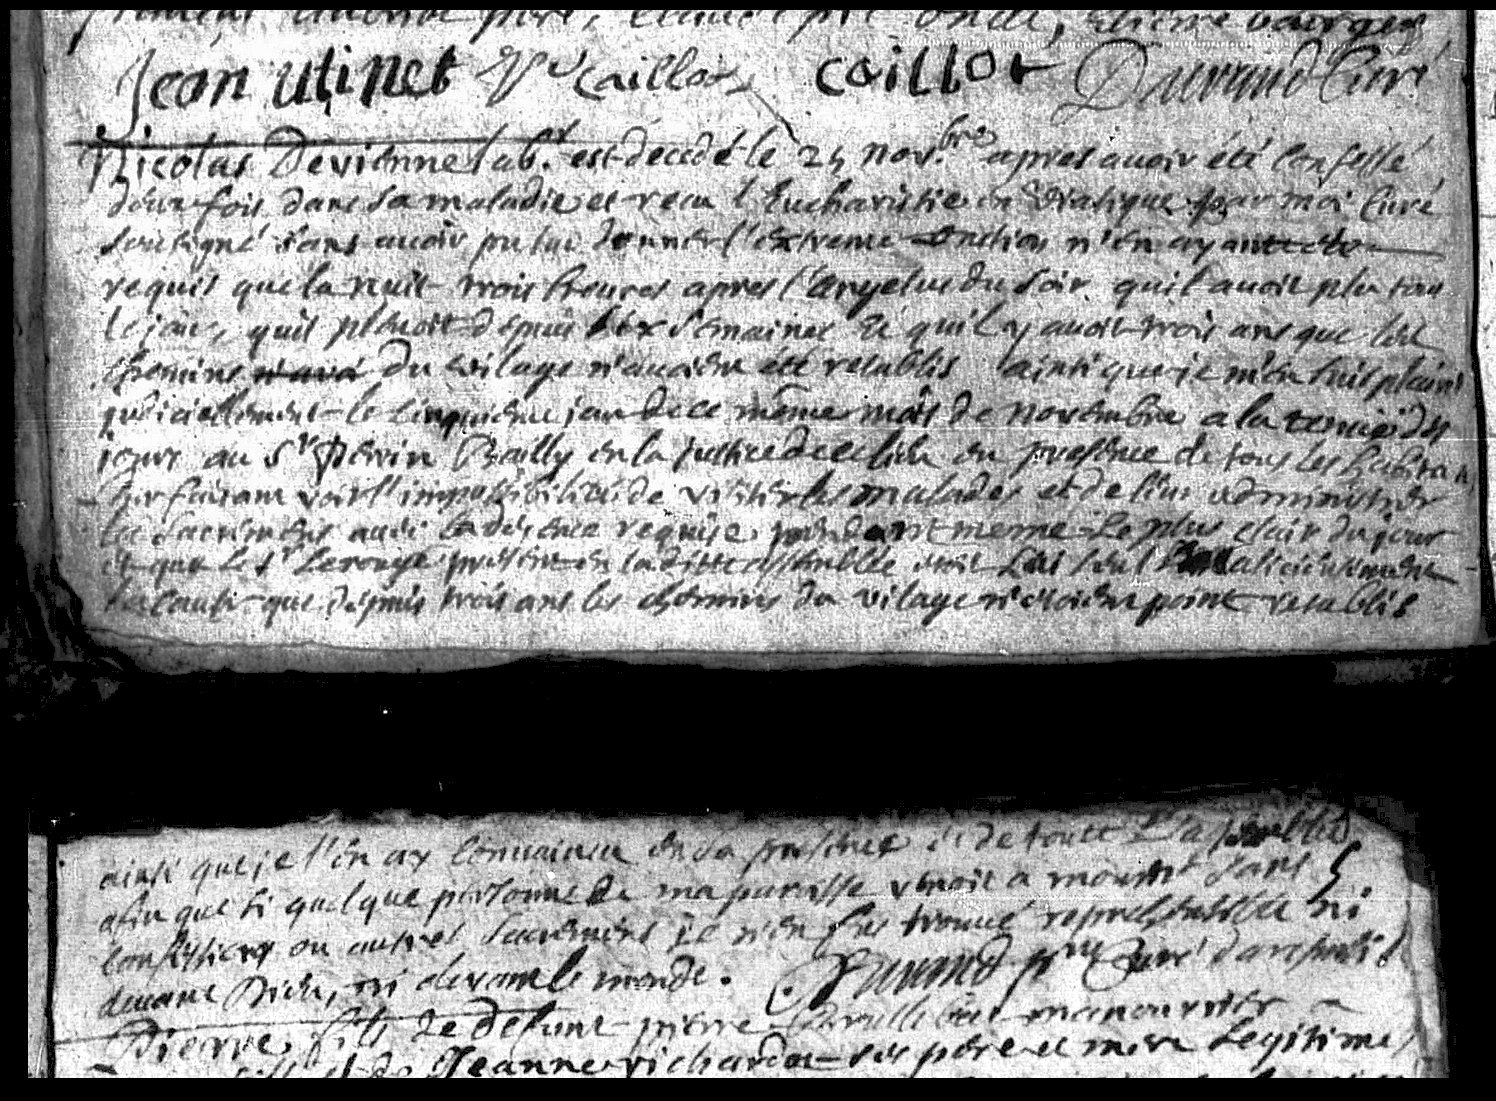 père, oncle,
Jean utinet Caillot caillot Durand Curé
Nicolas Devienne lab.r est decedé le 25 nov.bre apres avoir été confessé
d'une fois dans sa maladie et receu l'Eucharistie en viatique par moi Curé
soussigné sans avoir pu lui donner l'extreme onction n'en ayant eté
requis que la nuit trois heures apres l'angelus du soir quil avoit plu tou
le jour, quil pleuvoit depuis six semaines Et qu'il y avoit trois ans que les
chemins du vilage n'avoient été retablis ainsi que je m'en suis plaint
judiciellement le cinquieme jour de ce même mois de novembre a la tenüe des
jours au Sr Perrin Bailly en la justice de ce lieu en presence de tous les habitan
leur faisant voir l'impossibilité de visiter les malades et de leur administrer
les sacremens avec la decence requise pendant meme le plus clair du jour
et que le Sr Lerouge present en laditte assemblée etoit lui seul malicieusement
la cause que depuis trois ans les chemins du vilage n'etoient point retablis
ainsi que je l'en ay convaincu en sa presence et de toutte l'assemblée
afin que si quelque personne de ma paroisse venoit a mourir sans
confession ou autres sacremens je n'en fus trouvé reprehensible ni
devant Dieu, ni devant le monde. Durand ptre Curé
Pierre fils de defunt pierre manouvrier
et de Jeanne richardot ses pere et mere legitimes